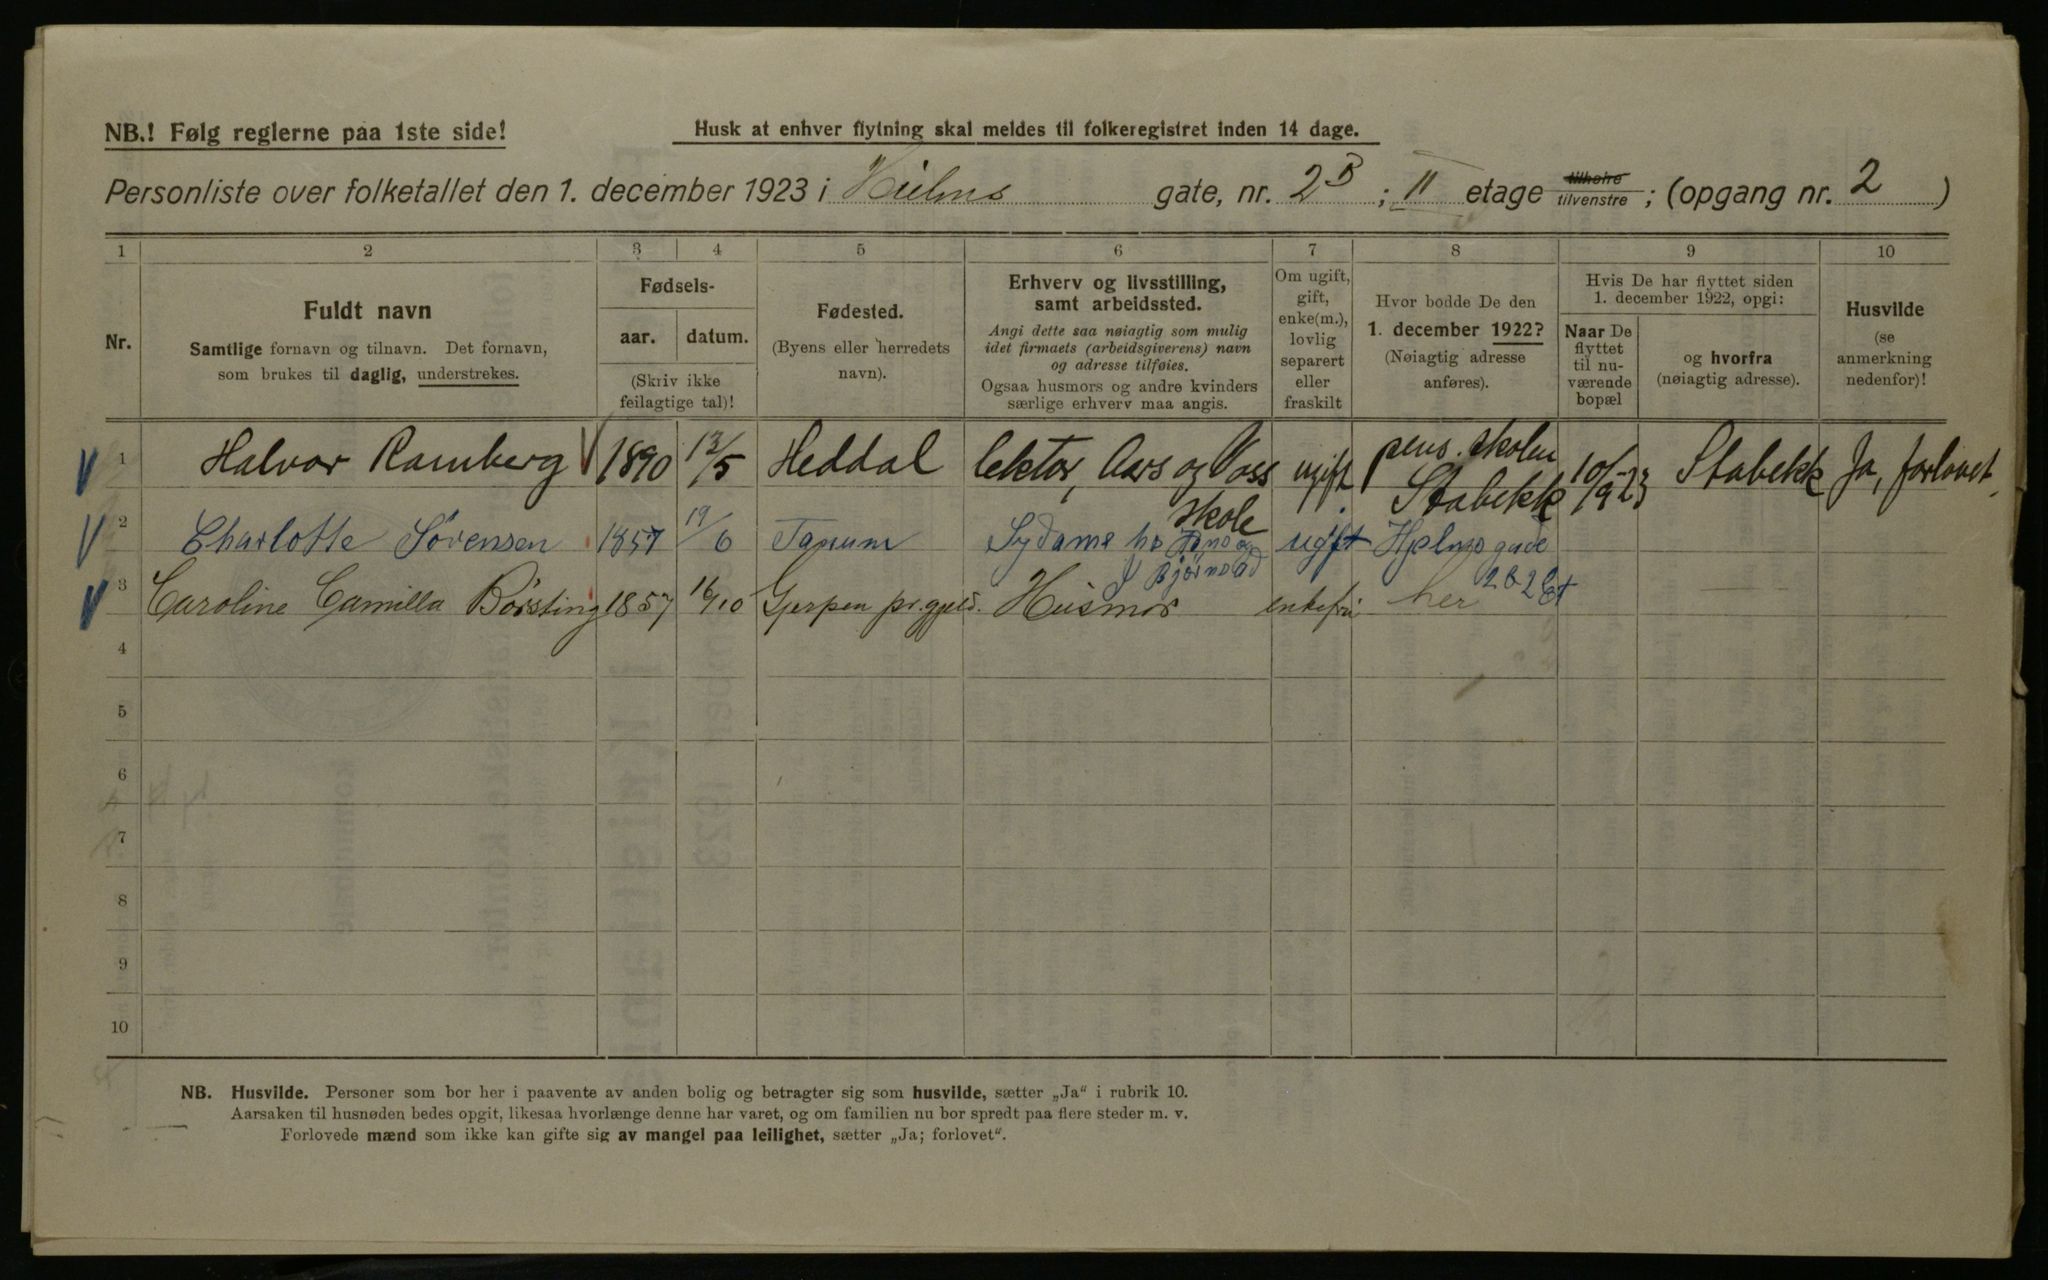 NB.! Følg reglerne paa 1ste side!
Husk at enhver flytning skal meldes til folkeregistret inden 14 dage.
Personliste over folketallet den 1. december 1923 i Hielms gate, nr. 2B ; II etage tilhøire tilvenstre ; (opgang nr. 2 )
1 2 3 4 5 6 7 8 9 10
Nr.
Fuldt navn
Samtlige fornavn og tilnavn. Det fornavn,
som brukes til daglig, understrekes.
Fødsels-
aar. datum.
(Skriv ikke
feilagtige tal)!
Fødested.
(Byens eller herredets
navn).
Erhverv og livsstilling,
samt arbeidssted.
Angi dette saa nøiagtig som mulig
idet firmaets (arbeidsgiverens) navn
og adresse tilføies.
Ogsaa husmors og andre kvinders
særlige erhverv maa angis.
Om ugift,
gift,
enke(m.),
lovlig
separert
eller
fraskilt
Hvor bodde De den
1. december 1922?
(Nøiagtig adresse
anføres).
Hvis De har flyttet siden
1. december 1922, opgi:
Naar De
flyttet
til nu-
værende
bopæl
og hvorfra
(nøiagtig adresse).
Husvilde
(se
anmerkning
nedenfor)!
1 Halvor Ramberg 1890 13/5 Heddal lektor, Aars og Voss skole ugift pens. skolen Stabekk 10/9-23 Stabekk Ja, forlovet.
2 Charlotte Sørensen 1857 19/6 Tanum Sydame ugift Hjelmsgade 2 b 2 Et
3 Caroline Camilla Børsting 1857 16/10 Gjerpen pr.gjeld. Husmor enkefru her
4
5
6
7
8
9
10
NB. Husvilde. Personer som bor her i paavente av anden bolig og betragter sig som husvilde, sætter „Ja“ i rubrik 10.
Aarsaken til husnøden bedes opgit, likesaa hvorlænge denne har varet, og om familien nu bor spredt paa flere steder m. v.
Forlovede mænd som ikke kan gifte sig av mangel paa leilighet, sætter „Ja; forlovet“.